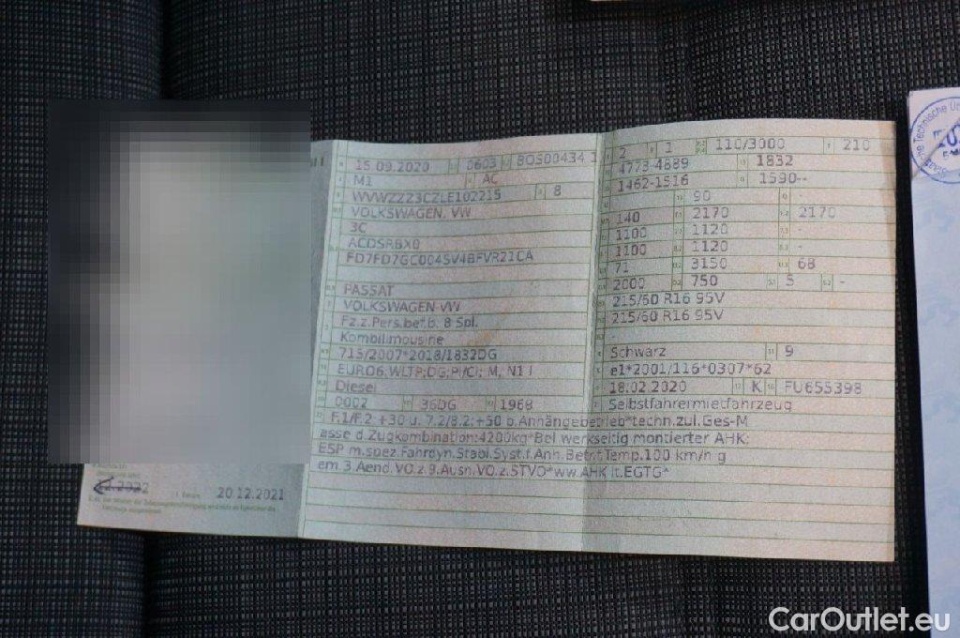 15.09.2020 0603 BOS00434 1
M1 AC
WVWZZZ3CZLE102215 8
VOLKSWAGEN, VW
3C
ACDSRBX0
FD7FD7GC004SV4BFVR21CA
PASSAT
VOLKSWAGEN-VW
Fz.z.Pers.bef.b. 8 Spl.
Kombilimousine
715/2007*2018/1832DG
EURO6,WLTP;DG;PI/CI; M, N1 I
Diesel
0002 36DG 1968
2 1 110/3000 210
4773-4889 1832
1462-1516 1590--
90
140 2170 2170
1100 1120 -
1100 1120 -
71 3150 68
2000 750 5 -
215/60 R16 95V
215/60 R16 95V
-
Schwarz 9
e1*2001/116*0307*62
18.02.2020 K FU655398
Selbstfahrermietfahrzeug
F.1/F.2: +30 u. 7.2/8.2:+50 b.Anhängebetrieb*techn.zul.Ges-M
asse d.Zugkombination:4200kg*Bei werkseitig montierter AHK;
ESP m.spez.Fahrdyn.Stabi.Syst.f.Anh.Betr.Temp.100 km/h g
em.3.Aend.VO.z.9.Ausn.VO.z.STVO*ww.AHK lt.EGTG*
20.12.2021
CarOutlet.eu